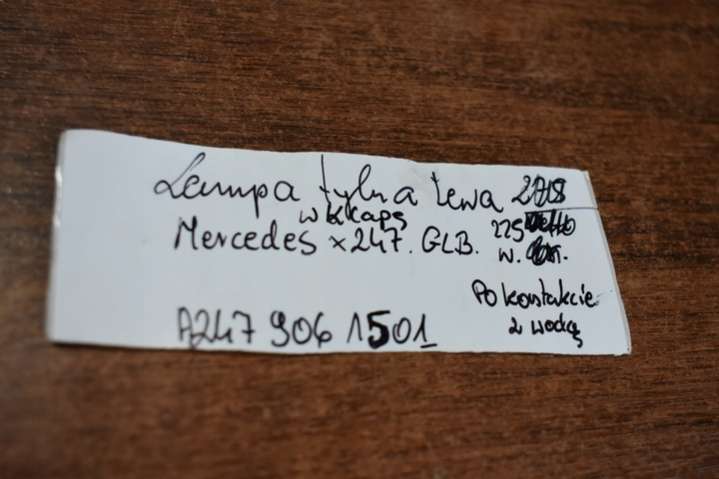 Lampa tylna lewa
w klapę
Mercedes x247. GLB. 225
w.
Po kontakcie
z wodą
A247 906 1501